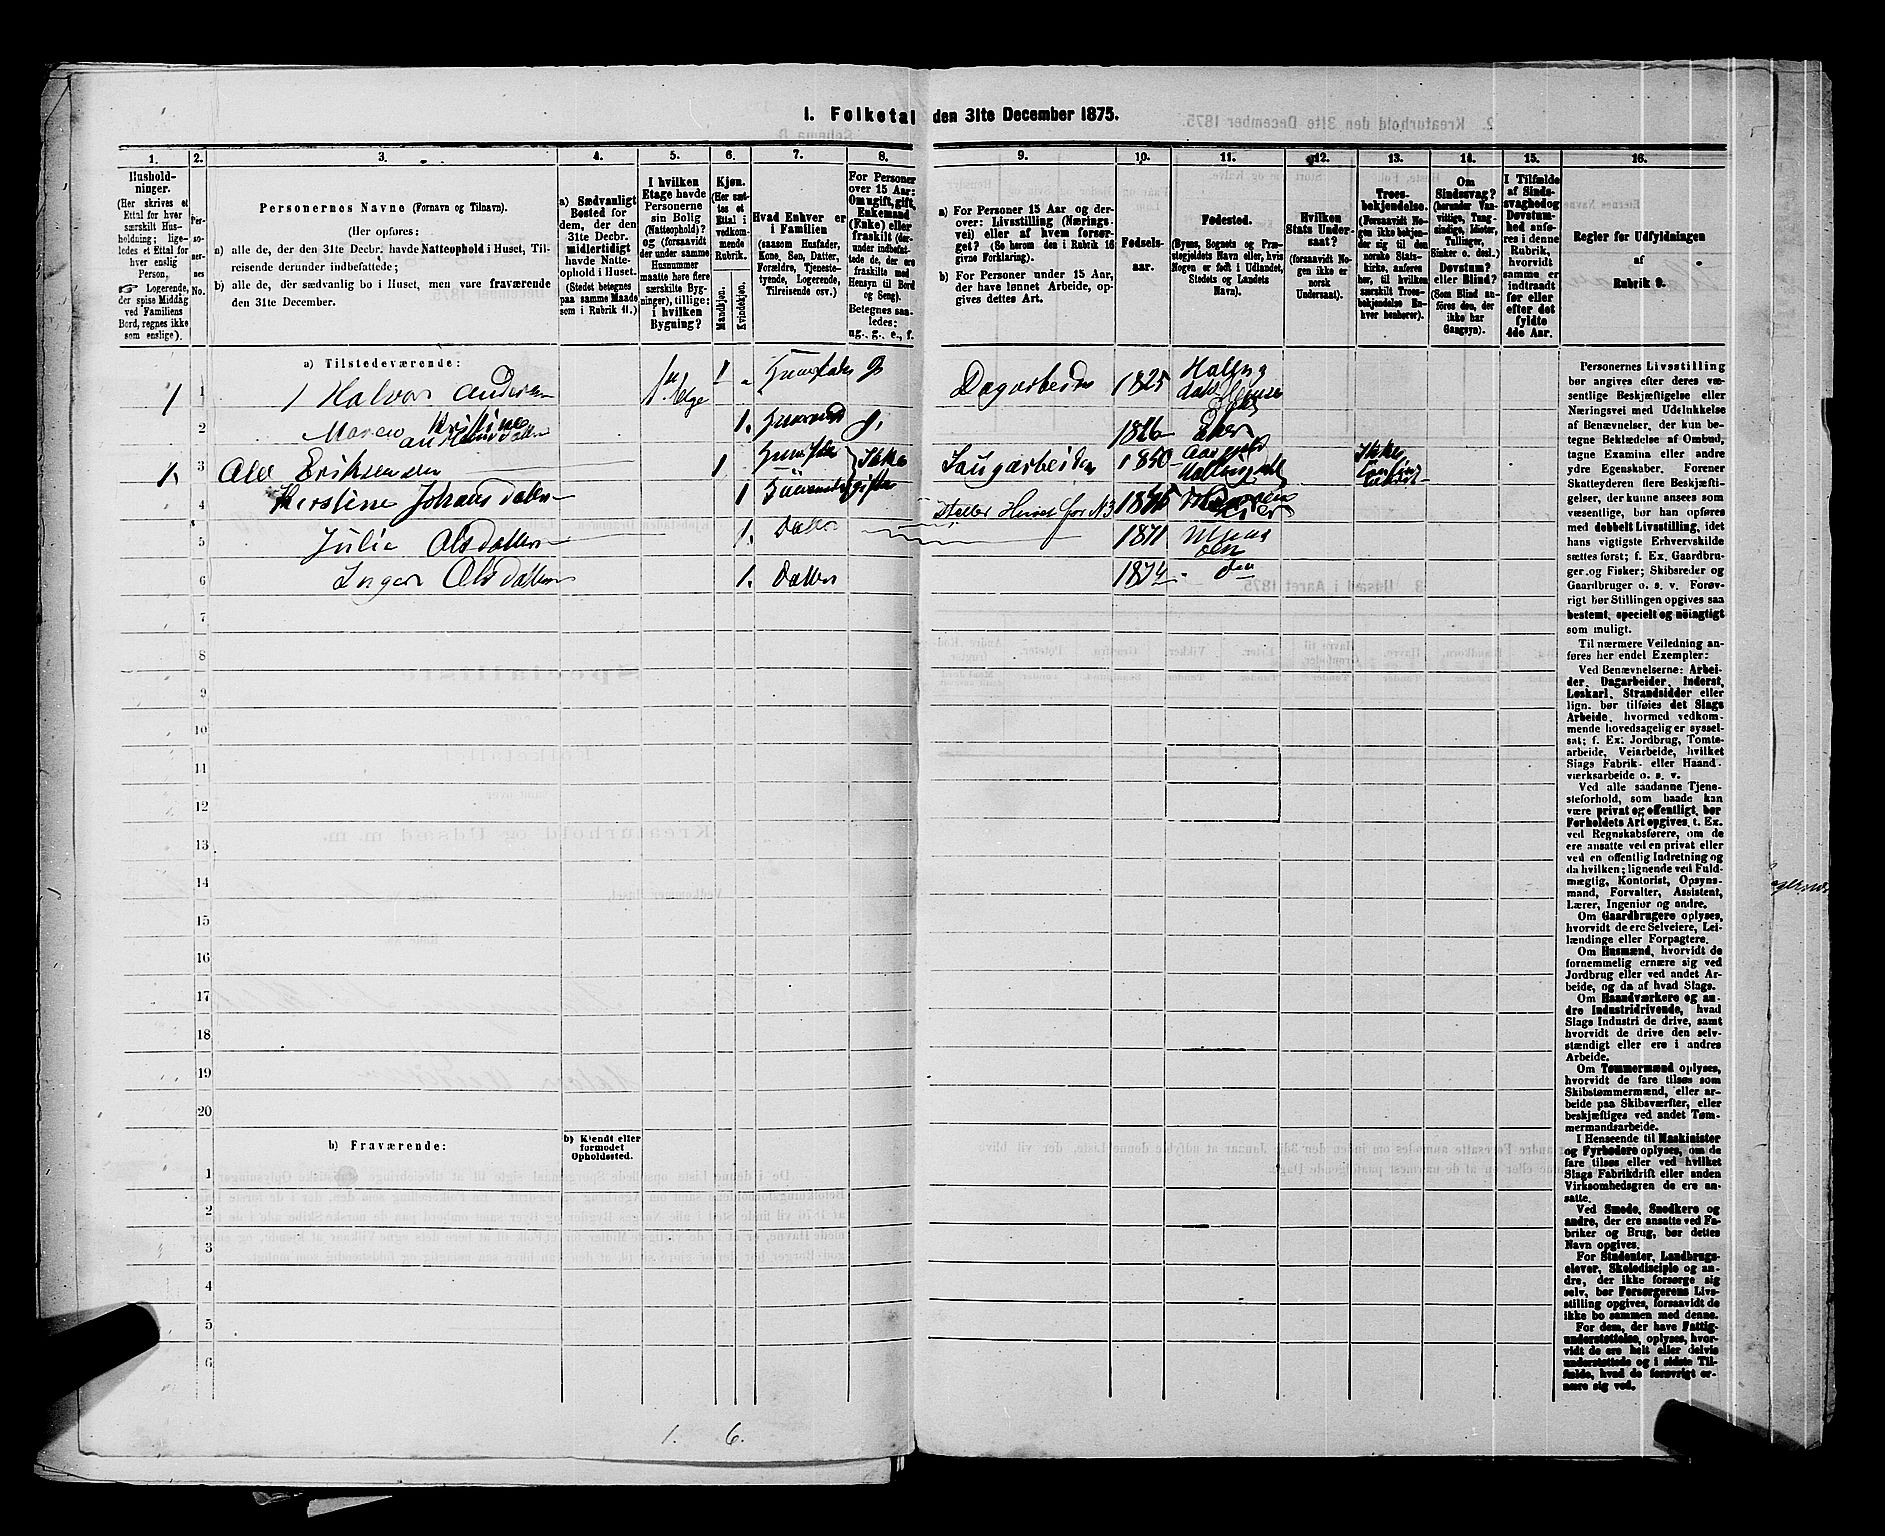 1. Folketal den 31te December 1875.
1. 2. 3. 4. 5. 6. 7. 8. 9. 10. 11. 12. 13. 14. 15. 16.
Hushold-
ninger.
(Her skrives et
Ettal for hver
særskilt Hus-
holdning; lige-
ledes et Ettal
for hver enslig
Person,
☞ Logerende,
der spise Middag
ved Familiens
Bord, regnes ikke
som enslige).
Per-
so-
ner-
nes
No.
Personernes Navne (Fornavn og Tilnavn).
(Her opføres:
a) alle de, der den 31te Decbr. havde Natteophold i Huset, Til-
reisende derunder indbefattede;
b) alle de, der sædvanlig bo i Huset, men vare fraværende
den 31te December.
a) Sædvanligt
Bosted for
dem, der den
31te Decbr.
midlertidigt
havde Natte-
ophold i Huset.
(Stedet betegnes
paa samme Maade
som i Rubrik 11.)
I hvilken
Etage havde
Personerne
sin Bolig
(Natteophold)?
og (forsaavidt
der under samme
Husnummer
maatte fere flere
særskilte Byg-
ninger), tillige:
i hvilken
Bygning?
Kjøn.
(Her sæt-
tes et
Ettal i
vedkom-
mende
Rubrik.
Mandkjøn.
Kvindekjøn.
Hvad Enhver er
i Familien
(saasom Husfader,
Kone, Søn, Datter,
Forældre, Tjeneste-
tyende, Logerende,
Tilreisende osv.)
For Personer
over 15 Aar:
Om ugift, gift,
Enkemand
(Enke) eller
fraskilt (der-
under indbefat-
tede de, der ere
fraskilte med
Hensyn til Bord
og Seng).
Betegnes saa-
ledes:
ug., g., e., f.
a) For Personer 15 Aar og der-
over: Livsstilling (Nærings-
vei) eller af hvem forsør-
get? (Se herom des i Rubrik 16
givne Forklaring).
b) For Personer under 15 Aar,
der have lønnet Arbeide, op-
gives dettes Art.
Fødsels-
aar.
Fødested.
(Byens, Sognets og Præ-
stegjeldets Navn eller, hvis
Nogen er født i Udlandet,
Stedets og Landets
Navn).
Hvilken
Stats Under-
saat?
(forsaavidt No-
gen ikke er
norsk
Undersaat).
Troes-
bekjendelse.
(Forsaavidt No-
gen ikke bekjen-
der sig til den
norske Stats-
kirke, anføres
her, til hvilken
særskilt Troes-
bekjendelse En-
hver henhører).
Om
Sindssvag?
(herunder Van-
vittige, Tung-
sindige, Idioter,
Tullinger,
Sinker o. desl.)
Døvstum?
eller Blind?
(Som Blind an-
føres den, der
ikke har
Gangsyn).
I Tilfælde
af Sinds-
svaghed og
Døvstum-
hed anfø-
res i denne
Rubrik,
hvorvidt
samme er
indtraadt
før eller
efter det
fyldte
4de Aar.
Regler for Udfyldningen
af
Rubrik 9.
a) Tilstedeværende:
1 1 Halvor Andersen 1ste Etge 1 Huusfader g Dagarbeider 1825 Halling
dal
2 Maren Kristine
1. g. 1826 Eker
1. 3 Ole Eriksen 1 Huusfader Ikke Saugarbeider 1850
Hallingdal Ikke
4 Kerstine Johansdatter 1 gifte steller Huset for N 3
5 Julie Olsdatter 1. Datter 1871
6 Inger Olsdatter 1. Datter 1874
7
8
9
10
11
12
13
14
15
16
17
18
19
20
b) Fraværende: b) Kjendt eller
formodet
Opholdssted.
1
2
3
4
5
6
1. 6.
Personernes Livsstilling
bør angives efter deres væ-
sentlige Beskjæftigelse eller
Næringsvei med Udelukkelse
af Benævnelser, der kun be-
tegne Beklædelse af Ombud,
tagne Examina eller andre
ydre Egenskaber. Forener
Skatteyderen flere Beskjæfti-
gelser, der kunne ansees som
væsentlige, bør han opføres
med dobbelt Livsstilling, idet
hans vigtigste Erhvervskilde
sættes først; f. Ex. Gaardbru-
ger og Fisker; Skibsreder og
Gaardbruger o. s. v. Forøv-
rigt bør Stillingen opgives saa
bestemt, specielt og nøiagtigt
som muligt.
Til nærmere Veiledning an-
føres her endel Exempler:
Ved Benævnelserne: Arbei-
der, Dagarbeider, Inderst,
Løskarl, Strandsidder eller
lign. bør tilføies det Slags
Arbeide, hvormed vedkom-
mende hovedsagelig er syssel-
sat; f. Ex. Jordbrug, Tomte-
arbeide, Veiarbeide, hvilket
Slags Fabrik- eller Haand-
værksarbeide o. s. v.
Ved alle saadanne Tjene-
steforhold, som baade kan
være privat og offentligt, bør
Forholdets Art opgives, t. Ex.
ved Regnskabsførere, om de
ere ansatte ved en privat eller
ved en offentlig Indretning og
da hvilken; lignende ved Fuld-
mægtig, Kontorist, Opsyns-
mand, Forvalter, Assistent,
Lærer, Ingeniør og andre.
Om Gaardbrugere oplyses,
hvorvidt de ere Selveiere, Lei-
lændinge eller Forpagtere.
Om Husmænd, hvorvidt de
fornemmelig ernære sig ved
Jordbrug eller ved andet Ar-
beide, og da af hvad Slags.
Om Haandværkere og an-
dre Industridrivende, hvad
Slags Industri de drive, samt
hvorvidt de drive den selv-
stændigt eller ere i andres
Arbeide.
Om Tømmermænd oplyses,
hvorvidt de fare tilsøs som
Skibstømmermænd, eller ar-
beide paa Skibsværfter, eller
beskjæftiges ved andet Tøm-
mermandsarbeide.
I Henseende til Maskinister
og Fyrbødere oplyses, om de
fare tilsøs eller ved hvilket
Slags Fabrikdrift eller anden
Virksomhedsgren de ere an-
satte.
Ved Smede, Snedkere og
andre, der ere ansatte ved Fa-
briker og Brug, bør dettes
Navn opgives.
For Studenter, Landbrugs-
elever, Skoledisciple og an-
dre, der ikke forsørge sig
selv, bør Forsørgerens Livs-
stilling opgives, forsaavidt de
ikke bo sammen med denne.
For dem, der have Fattig-
understøttelse, oplyses, hvor-
vidt de ere helt eller delvis
understøttede og i sidste Til-
fælde, hvad de forøvrigt er-
nære sig ved.